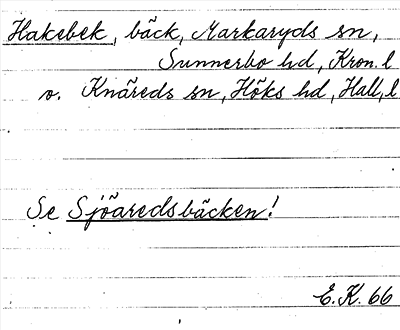 Hakebek, bäck, Markaryds sn,
Sunnerbo hd, Kron. l
o. Knäreds sn, Höks hd, Hall, l
Se Sjöaredsbäcken!
E.K. 66